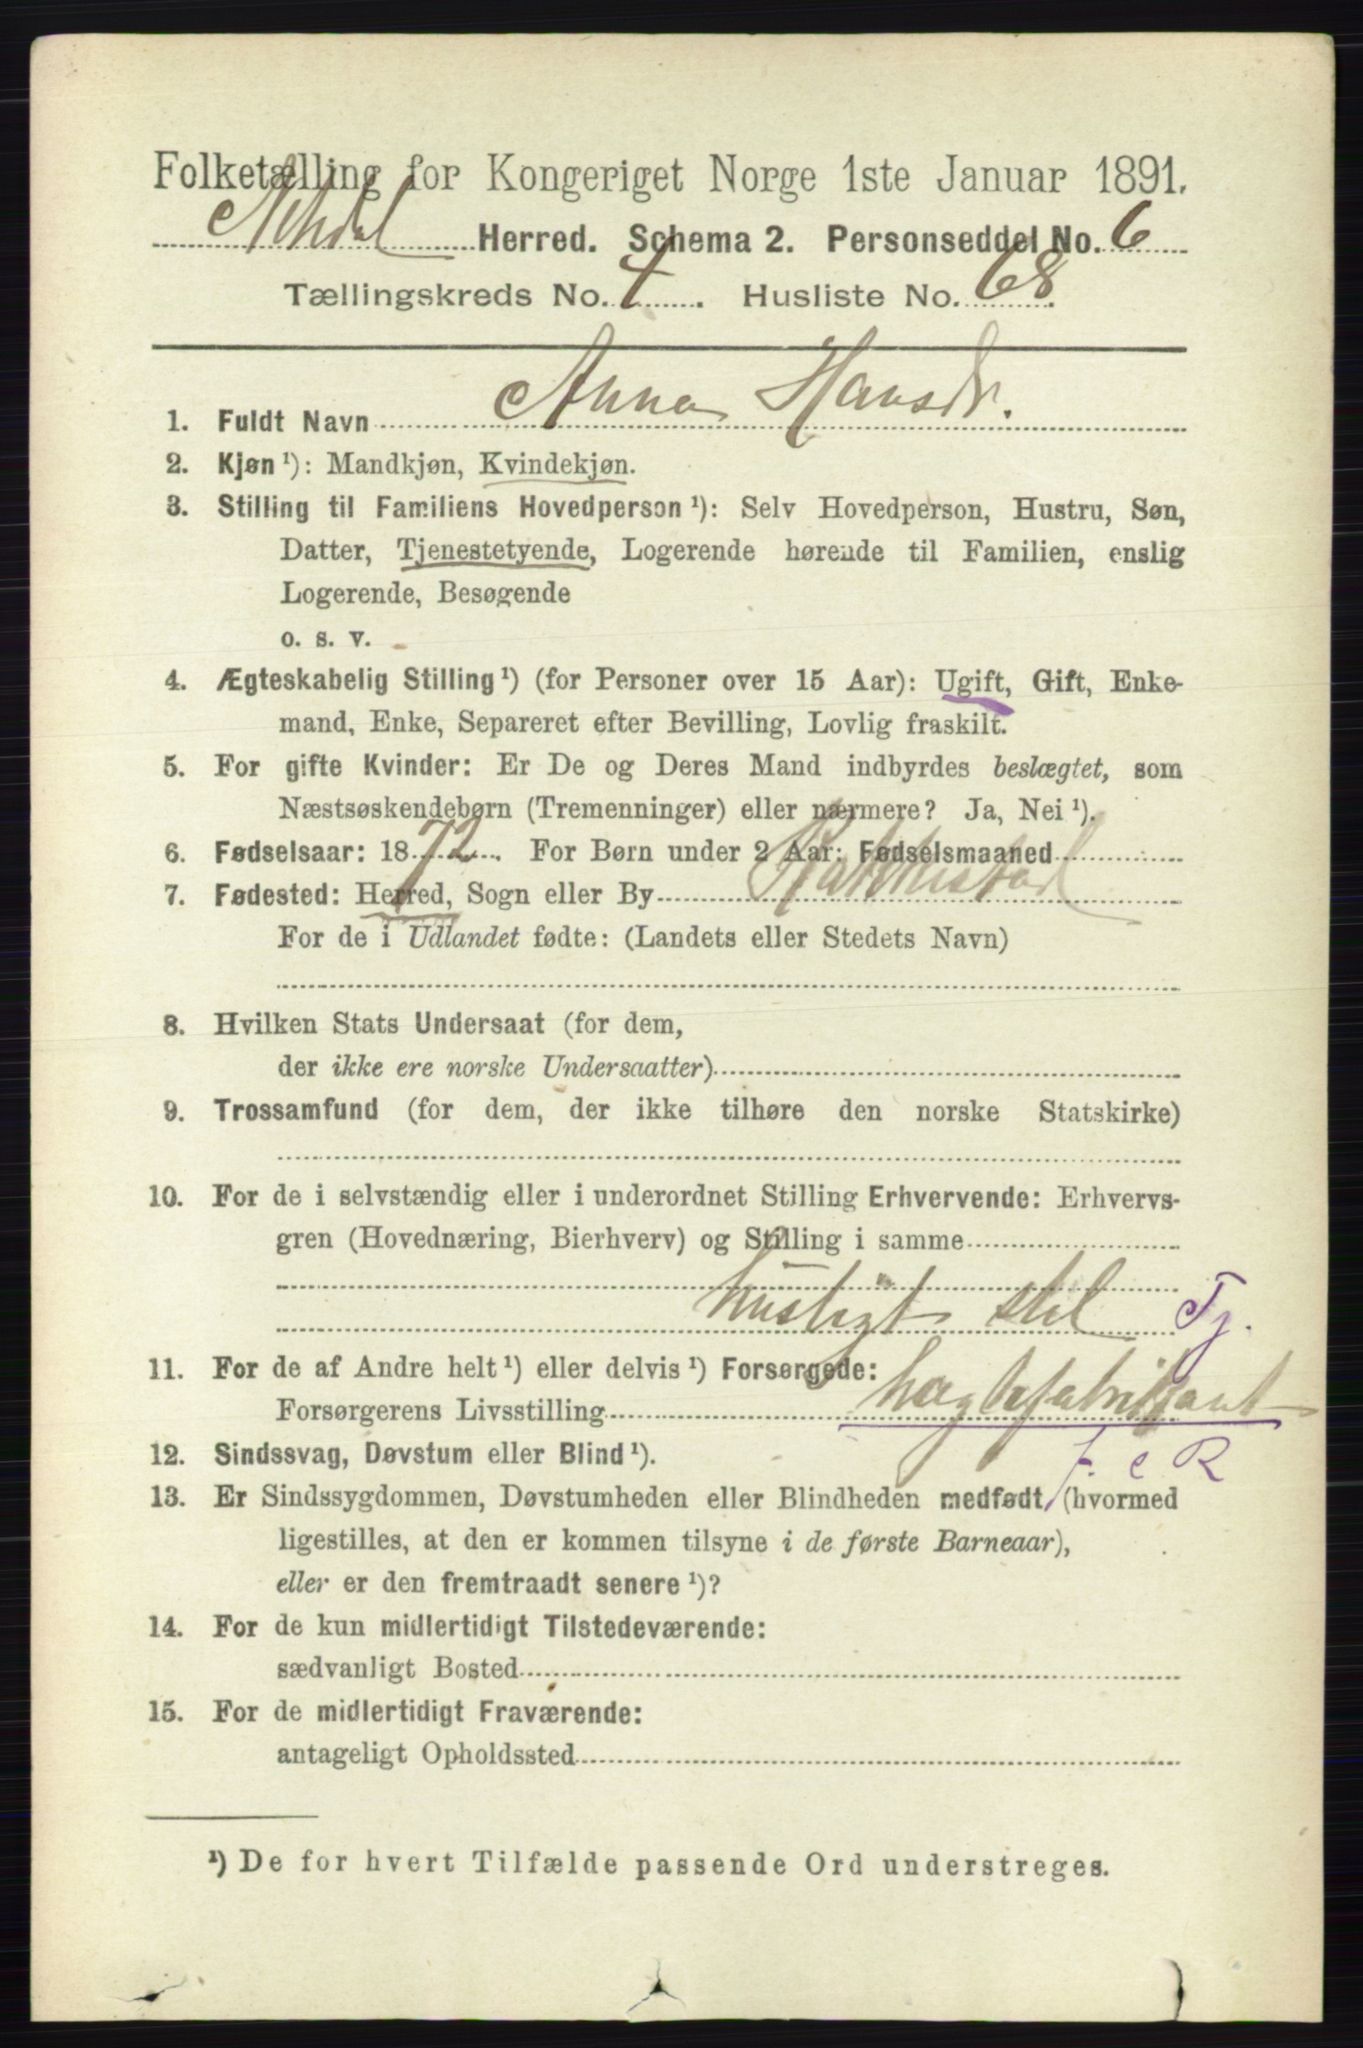 Folketælling for Kongeriget Norge 1ste Januar 1891.
Herred. Schema 2. Personseddel No. 6
Tællingskreds No. 4. Husliste No. 68.
1. Fuldt Navn Anna Hansdr.
2. Kjøn ¹): Mandkjøn, Kvindekjøn.
3. Stilling til Familiens Hovedperson ¹): Selv Hovedperson, Hustru, Søn,
Datter, Tjenestetyende, Logerende hørende til Familien, enslig
Logerende, Besøgende
o. s. v.
4. Ægteskabelig Stilling ¹) (for Personer over 15 Aar): Ugift, Gift, Enke-
mand, Enke, Separeret efter Bevilling, Lovlig fraskilt.
5. For gifte Kvinder: Er De og Deres Mand indbyrdes beslægtet, som
Næstsøskendebørn (Tremenninger) eller nærmere? Ja, Nei ¹).
6. Fødselsaar: 1872. For Børn under 2 Aar: Fødselsmaaned
7. Fødested: Herred, Sogn eller By
For de i Udlandet fødte: (Landets eller Stedets Navn)
8. Hvilken Stats Undersaat (for dem,
der ikke ere norske Undersaatter)
9. Trossamfund (for dem, der ikke tilhøre den norske Statskirke)
10. For de i selvstændig eller i underordnet Stilling Erhvervende: Erhvervs-
gren (Hovednæring, Bierhverv) og Stilling i samme
husligt stel Tj.
11. For de af Andre helt ¹) eller delvis ¹) Forsørgede:
Forsørgerens Livsstilling
12. Sindssvag, Døvstum eller Blind ¹).
13. Er Sindssygdommen, Døvstumheden eller Blindheden medfødt, (hvormed
ligestilles, at den er kommen tilsyne i de første Barneaar),
eller er den fremtraadt senere ¹)?
14. For de kun midlertidigt Tilstedeværende:
sædvanligt Bosted
15. For de midlertidigt Fraværende:
antageligt Opholdssted
¹) De for hvert Tilfælde passende Ord understreges.